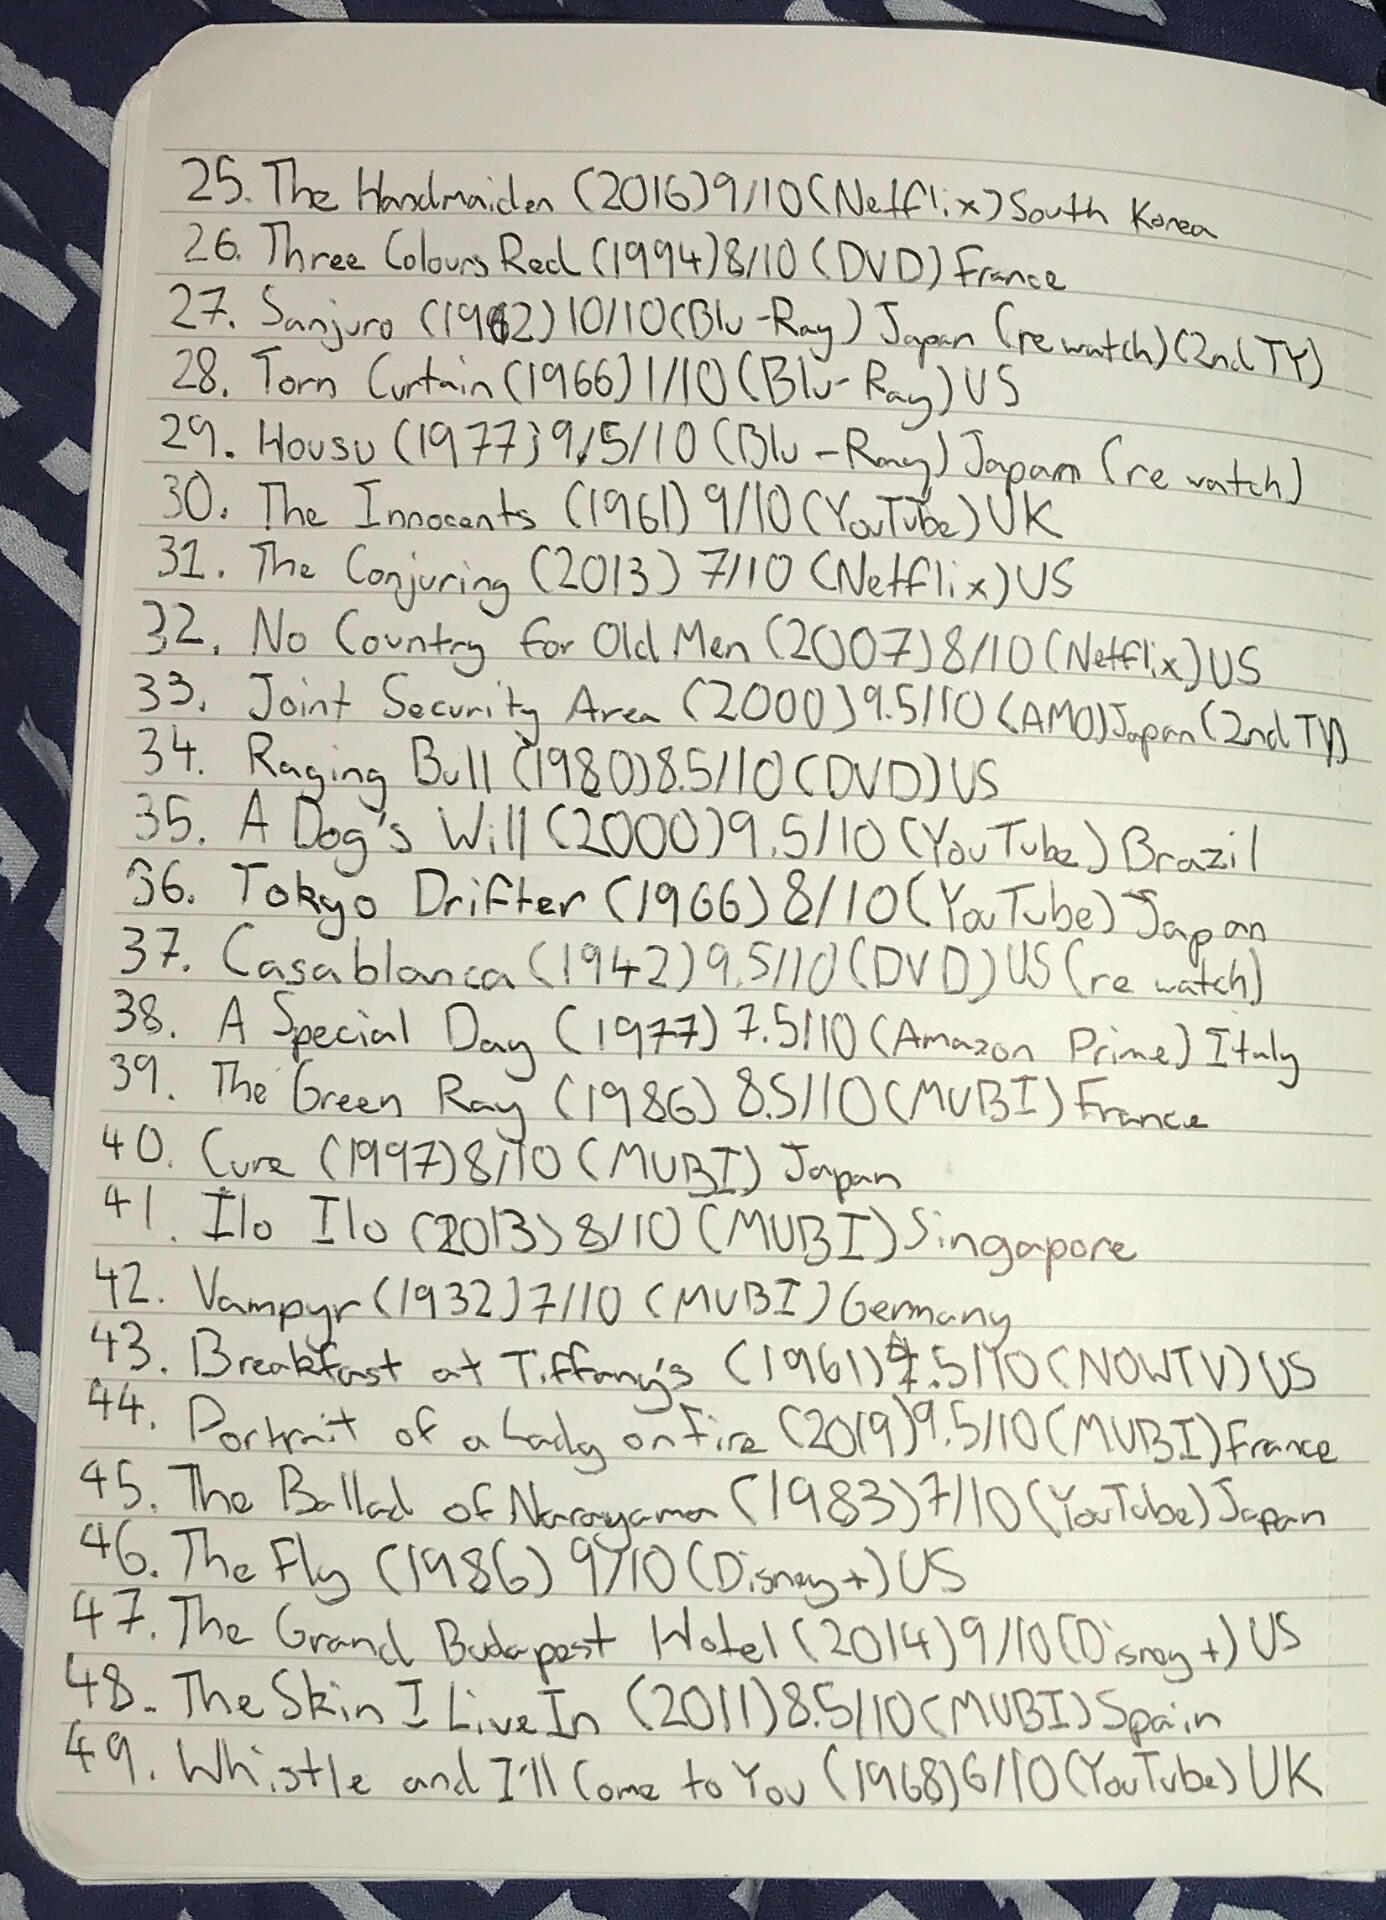 25. The Handmaiden (2016) 9/10 (Netflix) South Korea
26. Three Colours Red (1994) 8/10 (DVD) France
27. Sanjuro (1962) 10/10 (Blu-Ray) Japan (rewatch) (2nd TY)
28. Torn Curtain (1966) 1/10 (Blu-Ray) US
29. Housu (1977) 9/5/10 (Blu-Ray) Japan (re watch)
30. The Innocents (1961) 9/10 (YouTube) UK
31. The Conjuring (2013) 7/10 (Netflix) US
32. No Country for Old Men (2007) 8/10 (Netflix) US
33. Joint Security Area (2000) 9.5/10 (AMO) Japan (2nd TY)
34. Raging Bull (1980) 8.5/10 (DVD) US
35. A Dog's Will (2000) 9.5/10 (YouTube) Brazil
36. Tokyo Drifter (1966) 8/10 (YouTube) Japan
37. Casablanca (1942) 9.5/10 (DVD) US (re watch)
38. A Special Day (1977) 7.5/10 (Amazon Prime) Italy
39. The Green Ray (1986) 8.5/10 (MUBI) France
40. Cure (1997) 8/10 (MUBI) Japan
41. Ilo Ilo (2013) 8/10 (MUBI) Singapore
42. Vampyr (1932) 7/10 (MUBI) Germany
43. Breakfast at Tiffany's (1961) .5/10 (NOWTV) US
44. Portrait of a Lady on Fire (2019) 9.5/10 (MUBI) France
45. The Ballad of Narayama (1983) 7/10 (YouTube) Japan
46. The Fly (1986) 9/10 (Disney+) US
47. The Grand Budapest Hotel (2014) 9/10 (Disney+) US
48. The Skin I Live In (2011) 8.5/10 (MUBI) Spain
49. Whistle and I'll Come to You (1968) 6/10 (YouTube) UK